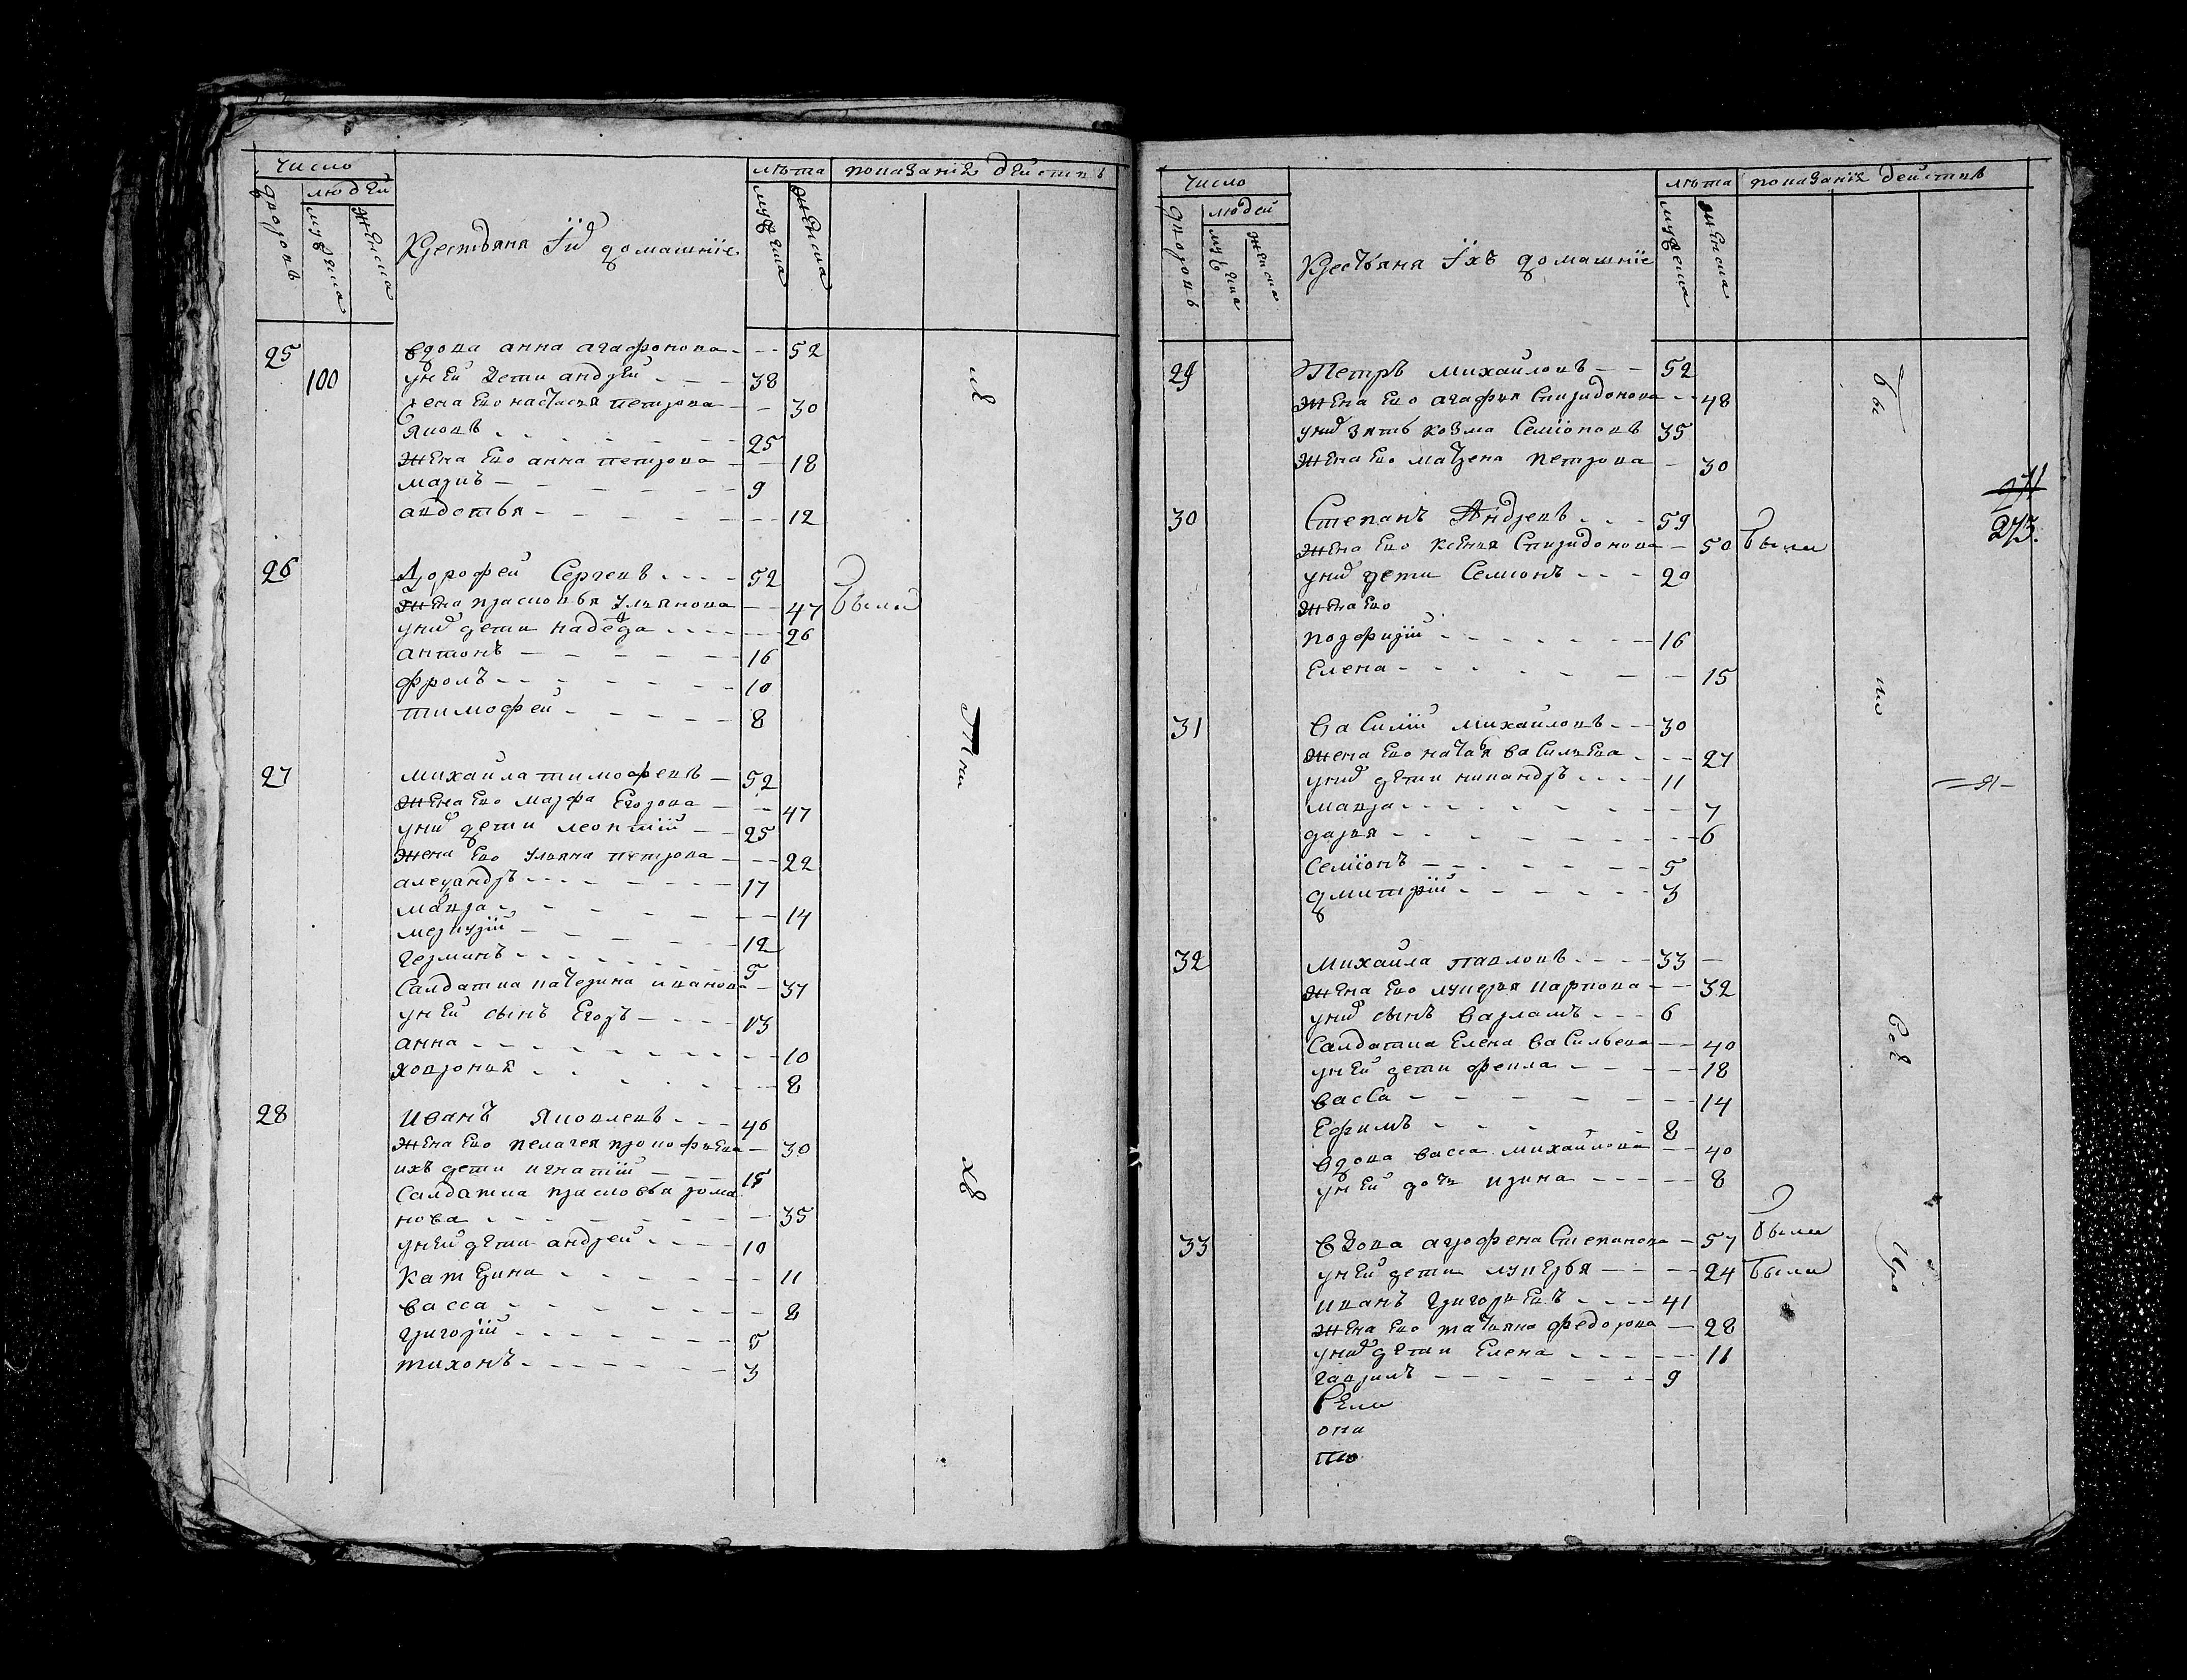 число
людей
дворовъ
мужеска
женска
Крестьяня Їхъ домашнїе
лѣта
мужеска
женска
показанїе действъ
25 вдова анна агафонова 52
100 у ней дети андрей 38
жена ево настасья петрова 30
яковъ 25
жена ево анна петрова 18
маркъ 9
авдотья 12
26 Дорофей Сергеевъ 52
жена прасковья ульянова 47 были
у них дети надежда 26
антонъ 16
фролъ 10
тимофей 8
27 михаила тимофеевъ 52
жена ево марфа Егорова 47
у них дети леонтїй 25
жена ево ульяна петрова 22
александръ 17
мавра 14
меркурїй 12
германъ 5
Салдатка катерина иванова 37
у ней сынъ Егоръ 13
анна 10
ховронья 8
28 Иванъ Яковлевъ 46
жена ево пелагея прокофьева 30
ихъ дети игнатїй 15
Салдатка прасковья рома
нова 35
у ней дети андрей 10
катерина 11
васса 8
григорїй 5
тихонъ 3
число
людей
дворовъ
мужеска
женска
Крестьяня Їхъ домашнїе
лѣта
мужеска
женска
показанїе действъ
29 Петръ михайловъ 52
жена ево агафья Спиридонова 48
у них зять козма Семїоновъ 35
жена ево матрена петрова 30
271
273.
30 Степанъ Андреевъ 59
жена ево ксенья Спиридонова 50 были
у них дети Семионъ 20
жена ево
порфирїй 16
Елена 15
31 Василїй михайловъ 30
жена ево наталья васильева 27
у них дети никандръ 11
мавра 7
дарья 6
семїонъ 5
дмитрїй 3
32 Михаила павловъ 33
жена ево лукерья карпова 32
у них сынъ варламъ 6
Салдатка Елена васильева 40
у ней дети фекла 18
васса 14
Ефимъ 8
вдова васса михайлова 40
у ней дочь ирина 8
33 вдова агрофена Степанова 57 были
у ней дети лукерья 24 были
иванъ григорьевъ 41
жена ево татьяна федорова 28
у них дети Елена 11
гаврилъ 9
она